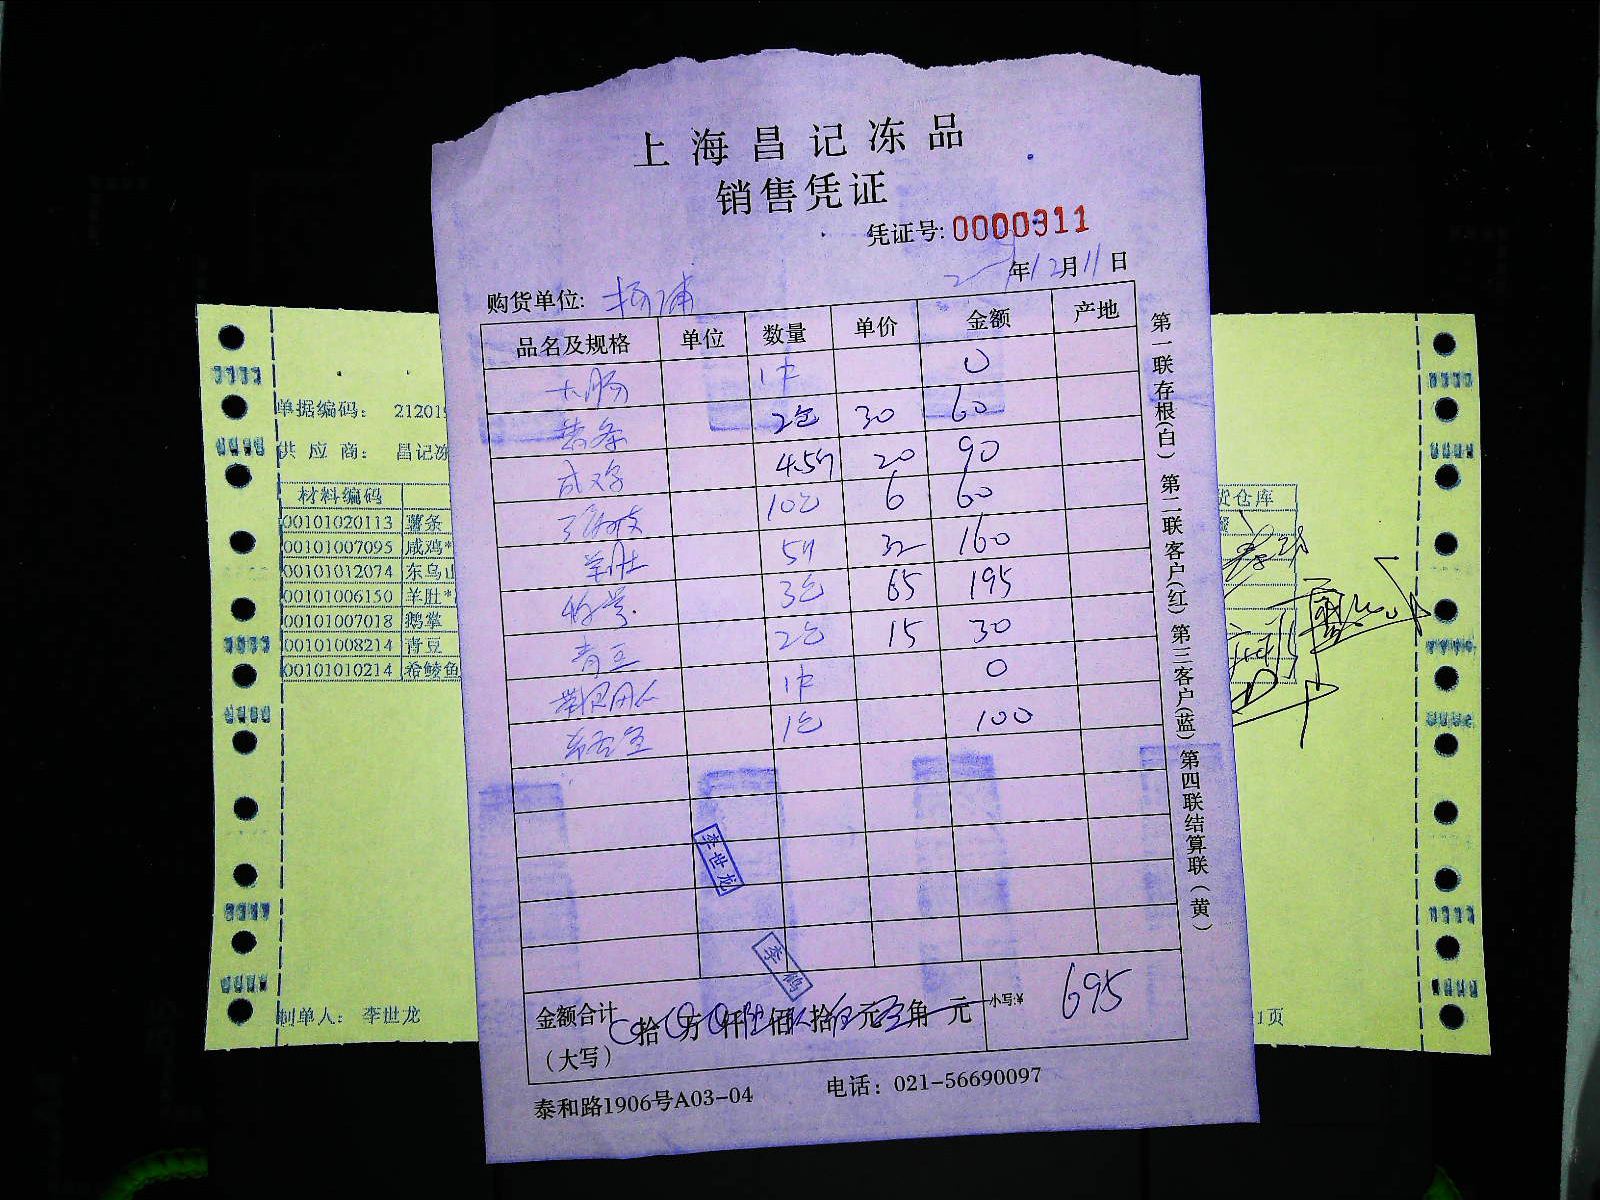 上海昌记冻品
销售凭证
凭证号:0000311
年12月11日
购货单位: 杨浦
品名及规格 单位 数量 单价 金额 产地
大肠 1件 0
薯条 2包 30 60
咸鸡 4.5斤 20 90
10包 6 60
羊肚 5斤 32 160
鹅掌 3包 65 195
青豆 2包 15 30
1件 0
1包 100
李世龙
李鹤
金额合计 拾 万 仟 陆 佰 玖 拾 伍 元 角 元 小写:¥ 695
(大写)
泰和路1906号A03-04 电话: 021-56690097
第一联存根(白) 第二联客户(红) 第三客户(蓝) 第四联结算联(黄)
单据编码: 21201
供应商: 昌记冻
材料编码
00101020113 薯条
00101007095 咸鸡*
00101012074 东乌山
00101006150 羊肚*
00101007018 鹅掌
00101008214 青豆
00101010214 希鲮鱼
货仓库
制单人: 李世龙
1页